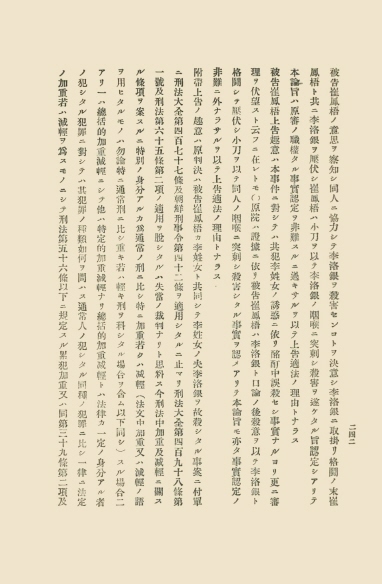 二四二
被告崔鳳梧ノ意思ヲ察知シ同人ニ協力シテ李洛銀ヲ殺害センコトヲ決意シ李洛銀ニ取掛リ格鬪ノ末崔
鳳梧ト共ニ李洛銀ヲ壓伏シ崔鳳梧ハ小刀ヲ以テ李洛銀ノ咽喉ニ突刺シ殺害ヲ遂ケタル旨認定シアリテ
本論旨ハ原審ノ職權タル事實認定ヲ非難スルニ過キサルヲ以テ上告適法ノ理由トナラス
被告崔鳳梧上告趣意ハ本事件ニ對シテハ共犯李姓女ノ誘惑ニ依リ酩酊中誤殺セシ事實ナルヨリ更ニ審
理ヲ伏望スト云フニ在レトモ○原院ハ證據ニ依リ被告崔鳳梧ハ李洛銀ト口論ノ後殺意ヲ以テ李洛銀ト
格鬪シテ壓伏シ小刀ヲ以テ同人ノ咽喉ニ突刺シ殺害シタル事實ヲ認メアリテ本論旨モ亦タ事實認定ノ
非難ニ外ナラサルヲ以テ上告適法ノ理由トナラス
附帶上告ノ趣意ハ原判決ハ被告崔鳳梧カ李姓女ト共同シテ李姓女ノ夫李洛銀ヲ故殺シタル事案ニ付單
ニ刑法大全第四百七十七條及朝鮮刑事令第四十二條ヲ適用シタルニ止マリ刑法大全第四百九十八條第
一號及刑法第六十五條第二項ノ適用ヲ脫シタルハ失當ノ裁判ナリト思料ス今刑法中加重及減輕ニ關ス
ル條項ヲ案スルニ特別ノ身分アルカ爲通常ノ刑ニ比シ特ニ加重若クハ減輕（法文中加重又ハ減輕ノ語
ヲ用ヒタルモノハ勿論特ニ通常刑ニ比シ重キ若ハ輕キ刑ヲ科シタル場合ヲ合ム以下同シ）スル場合二
アリ一ハ總括的加重減輕ニシテ他ハ特定的加重減輕ナリ總括的加重減輕トハ法律カ一定ノ身分アル者
ノ犯シタル犯罪ニ對シテハ其犯罪ノ種類如何ヲ問ハス通常人ノ犯シタル同種ノ犯罪ニ比シ一律ニ法定
ノ加重若ハ減輕ヲ爲スモノニシテ刑法第五十六條以下ニ規定スル累犯加重又ハ同第三十九條第二項及